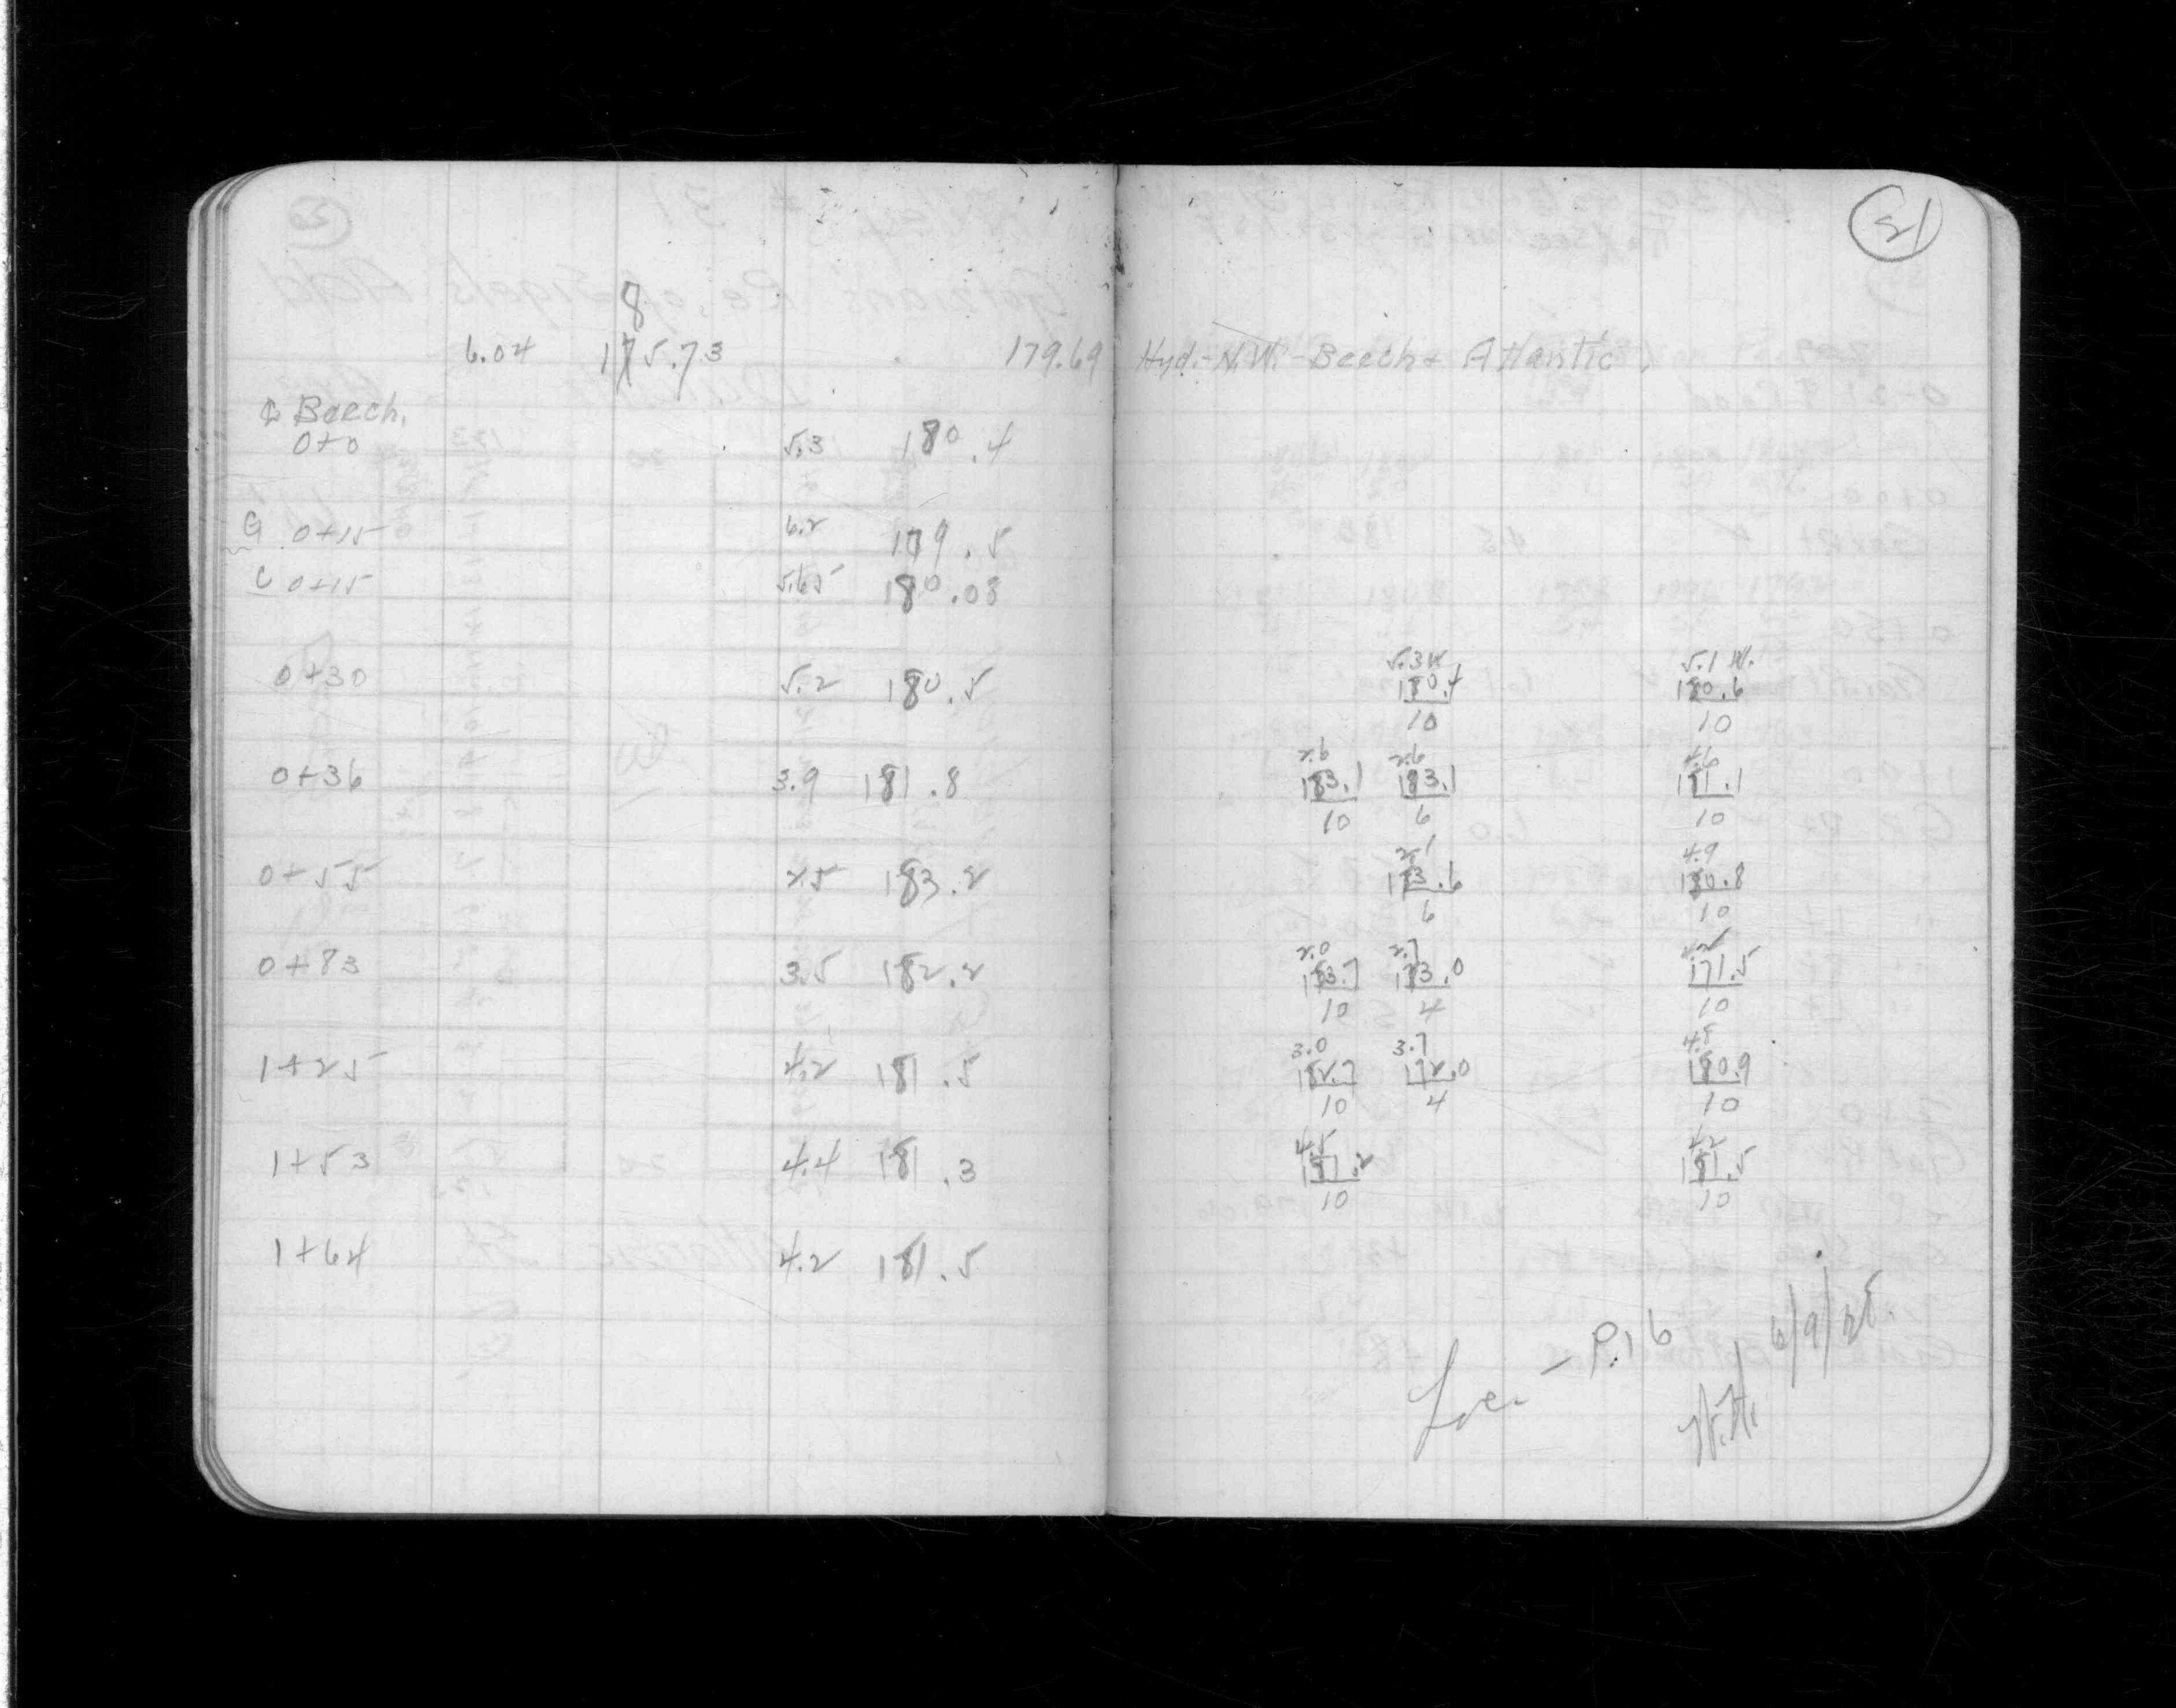 21
8
6.04 175.73 179.69 Hyd.-N.W.-Beech & Atlantic.
℄ Beech.
0+0 5.3 180.4
G 0+15 6.2 179.5
C 0+15 5.65 180.08
5.3W 5.1 W.
0+30 5.2 180.5 180.4 180.6
10 10
2.6 2.6 4.6
0+36 3.9 181.8 183.1 183.1 181.1
10 6 10
2.1 4.9
0+55 2.5 183.2 183.6 180.8
6 10
2.0 2.7 4.2
0+83 3.5 182.2 183.7 183.0 171.5
10 4 10
3.0 3.7 4.8
1+25 4.2 181.5 182.7 172.0 180.9
10 4 10
4.5 4.2
1+53 4.4 181.3 181.2 181.5
10 10
1+64 4.2 181.5
- P.16
6/9/25.